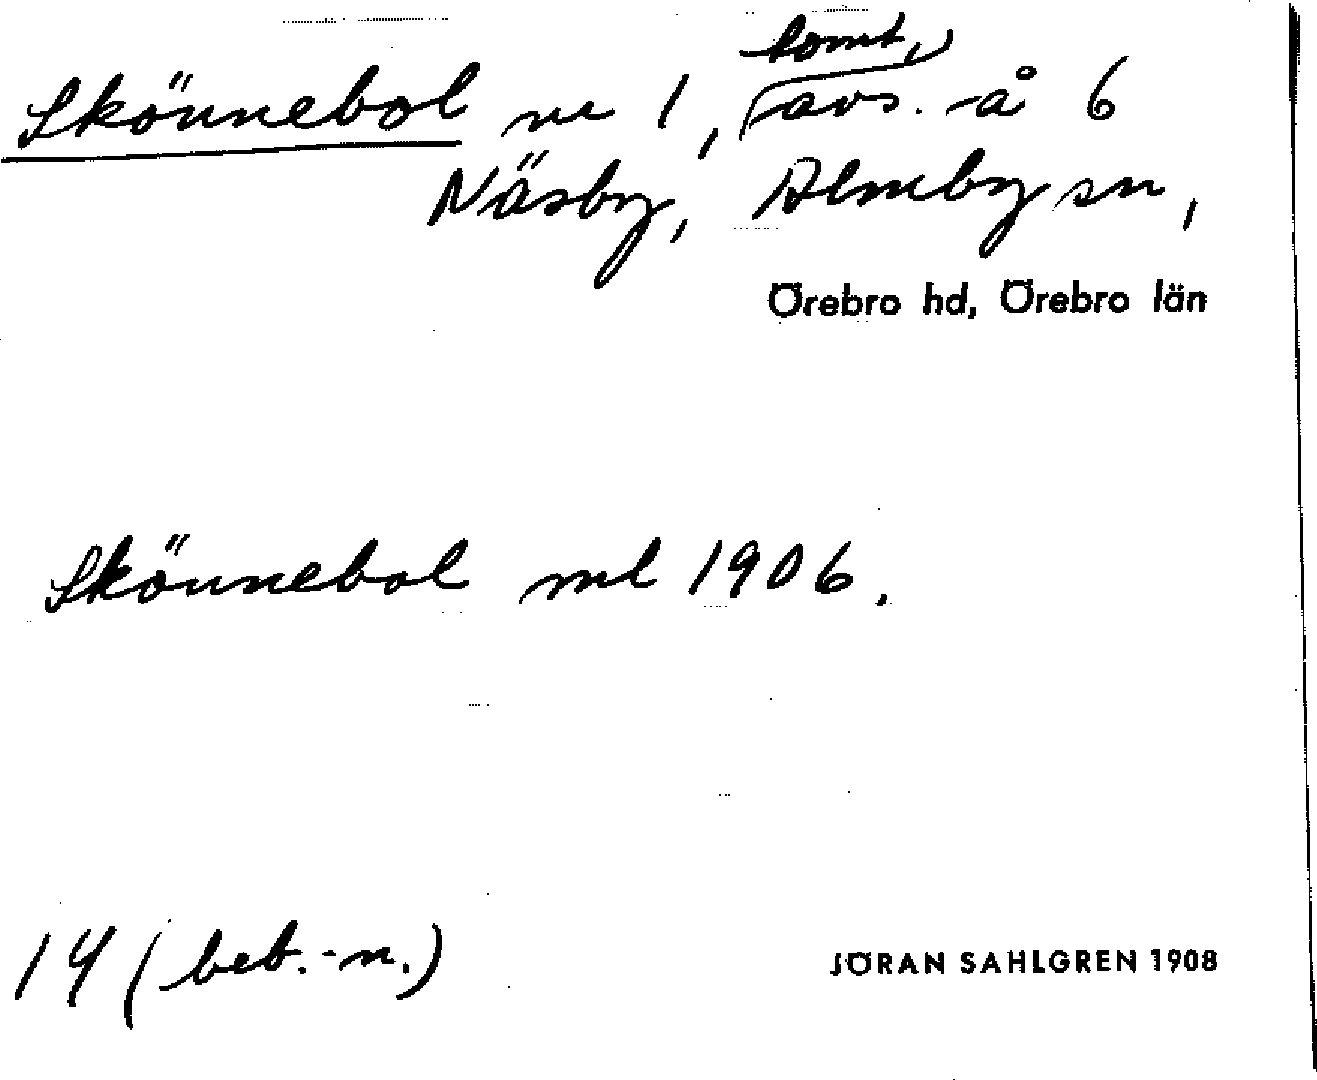 Skönnebol nr 1, tomt, avs. å 6
Näsby, Almby sn,
Örebro hd, Örebro län
Skönnebol ml 1906.
14 (beb.-n.)
JÖRAN SAHLGREN 1908